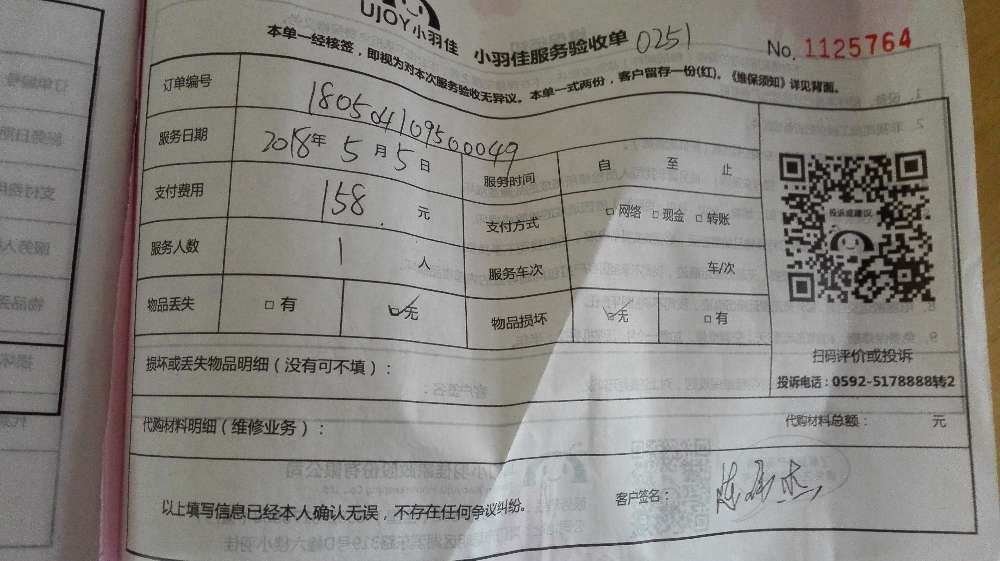 UJOY小羽佳
小羽佳服务验收单 0251
No. 1125764
本单一经核签，即视为对本次服务验收无异议。本单一式两份，客户留存一份(红)。《维保须知》详见背面。
订单编号 180504109500049
服务日期 2018年 5月 5日 服务时间 自 至 止
支付费用 158. 元 支付方式 □网络 □现金 □转账
服务人数 1 人 服务车次 车/次
物品丢失 □有 ☑无 物品损坏 ☑无 □有
投诉或建议
扫码评价或投诉
投诉电话：0592-5178888转2
损坏或丢失物品明细（没有可不填）：
代购材料明细（维修业务）： 代购材料总额： 元
以上填写信息已经本人确认无误，不存在任何争议纠纷。 客户签名：